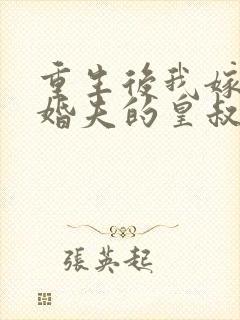 重生後我嫁
婚夫的皇叔
張英起